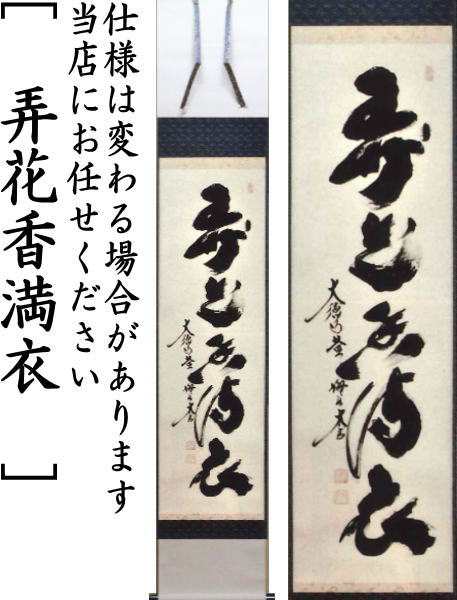 仕様は変わる場合があります
当店にお任せください
[弄花香満衣]
弄花香満衣
弄花香満衣